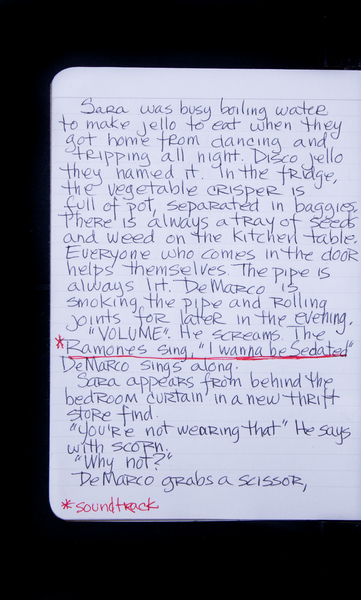 Sara was busy boiling water
to make jello to eat when they
got home from dancing and
tripping all night. Disco jello
they named it. In the fridge,
the vegetable crisper is
full of pot, separated in baggies.
There is always a tray of seeds
and weed on the kitchen table.
Everyone who comes in the door
helps themselves. The pipe is
always lit. DeMarco is
smoking the pipe and rolling
joints for later in the evening.
"VOLUME". He screams. The
*Ramones sing, "I wanna be sedated"
DeMarco sings along.
Sara appears from behind the
bedroom curtain in a new thrift
store find.
"You're not wearing that" He says
with scorn.
"Why not?"
DeMarco grabs a scissor,
*soundtrack